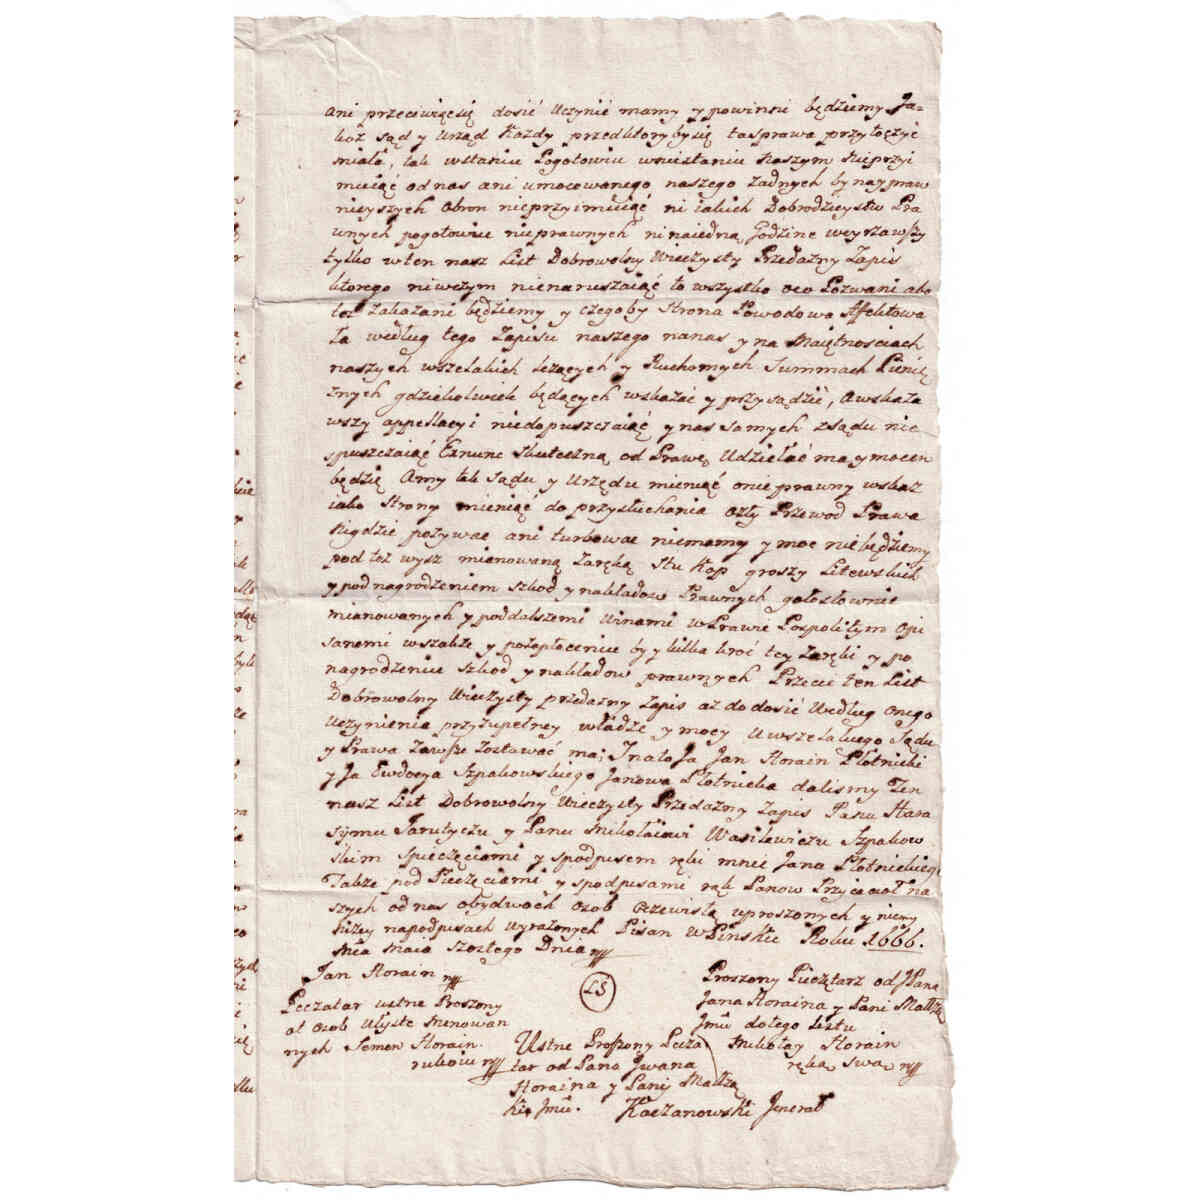 ani przeciwiącsię dosić Uczynić mamy y powinni będziemy Ja-
koż sąd y Urząd Każdy przedktorybysię tasprawa przytoczyć
miała, tak wstaniu Pogotowiu wniestaniu Naszym Nieprzyi
muiąć odnas ani umocowanego naszego Żadnych by naypraw
nieyszych Obron nieprzyimuiąć ni iakich Dobrodzieystw Pra
wnych pogotowiu nieprawnych ninaiedną Godzine weyszawszy
tylko wten nasz List Dobrowolny Wieczysty Przedażny Zapis
ktorego niwczym nienaruszaiąć to wszystko oco Pozwani abo
też Zakazani będziemy y czegoby Strona Powodowa Affektowa
ła według tego Zapisu naszego nanas y na Maiętnosciach
naszych wszelakich leżących y Ruchomych Summach Pienię
żnych gdziekolwiek będących wskazać y przysądzić, awskaza
wszy appellacyi niedopuszczaiąć y nas samych zsądu nie
spuszczaiąć Exnunc Skuteczną od Prawę Udzielać ma y mocen
będzie Amy tak Sądu y Urzędu mieniąć onieprawny wskaz
iako Strony mieniąć do przysłuchania ozły Przewod Prawa
Nigdzie pozywac ani turbowac niemamy y moc niebędziemy
pod też wysz mianowaną Zaręką Stu Kop groszy Litewskich
y pod nagrodzeniem szkod y nakładow Prawnych gołosłownie
mianowanych y poddalszemi Winami wPrawie Pospolitym Opi
sanemi wszakże y pozapłaceniu by y kilka kroć tey Zaręki y po
nagrodzeniu szkod y nakładow prawnych Przecie ten List
Dobrowolny Wieczysty przedażny Zapis aż do dosić Według Onego
Uczynienia przyzupełney władze y mocy Uwszelakiego Sądu
y Prawa Zawsze Zostawać ma; Inato Ja Jan Horain Płotnicki
y Ja Ewdocya Szpakowskiego Janowa Płotnicka dalismy Ten
nasz List Dobrowolny Wieczysty Przedażny Zapis Panu Hara
symu Jarutyczu y Panu Mikołaiowi Wasilewiczu Szpakow
skim Spieczęciami y spodpisem ręki mnie Jana Płotnickiego
Takze pod Pieczęciami y spodpisami rąk Panow Przyiacioł na
szych od nas obydwoch Osob Oczewistą uproszonych y niemy
Niżey napodpisach wyrażonych Pisan WPinsku Roku 1666.
Mca Maia Szostego Dnia
Jan Horain
LS
Peczatar ustne Proszony
ot Osob Wyste Menowan
nych Semen Horain.
rukoiu
Ustne Proszony Pecza
tar od Pana Jwana
Horaina y Panij Małżą
ki Jmci. Kaczanowski Jenerał
Proszony Pieczętarz od JPana
Jana Horaina y Pani Małżą
Jmci dotego Listu
Mikołay Horain
ręką swą